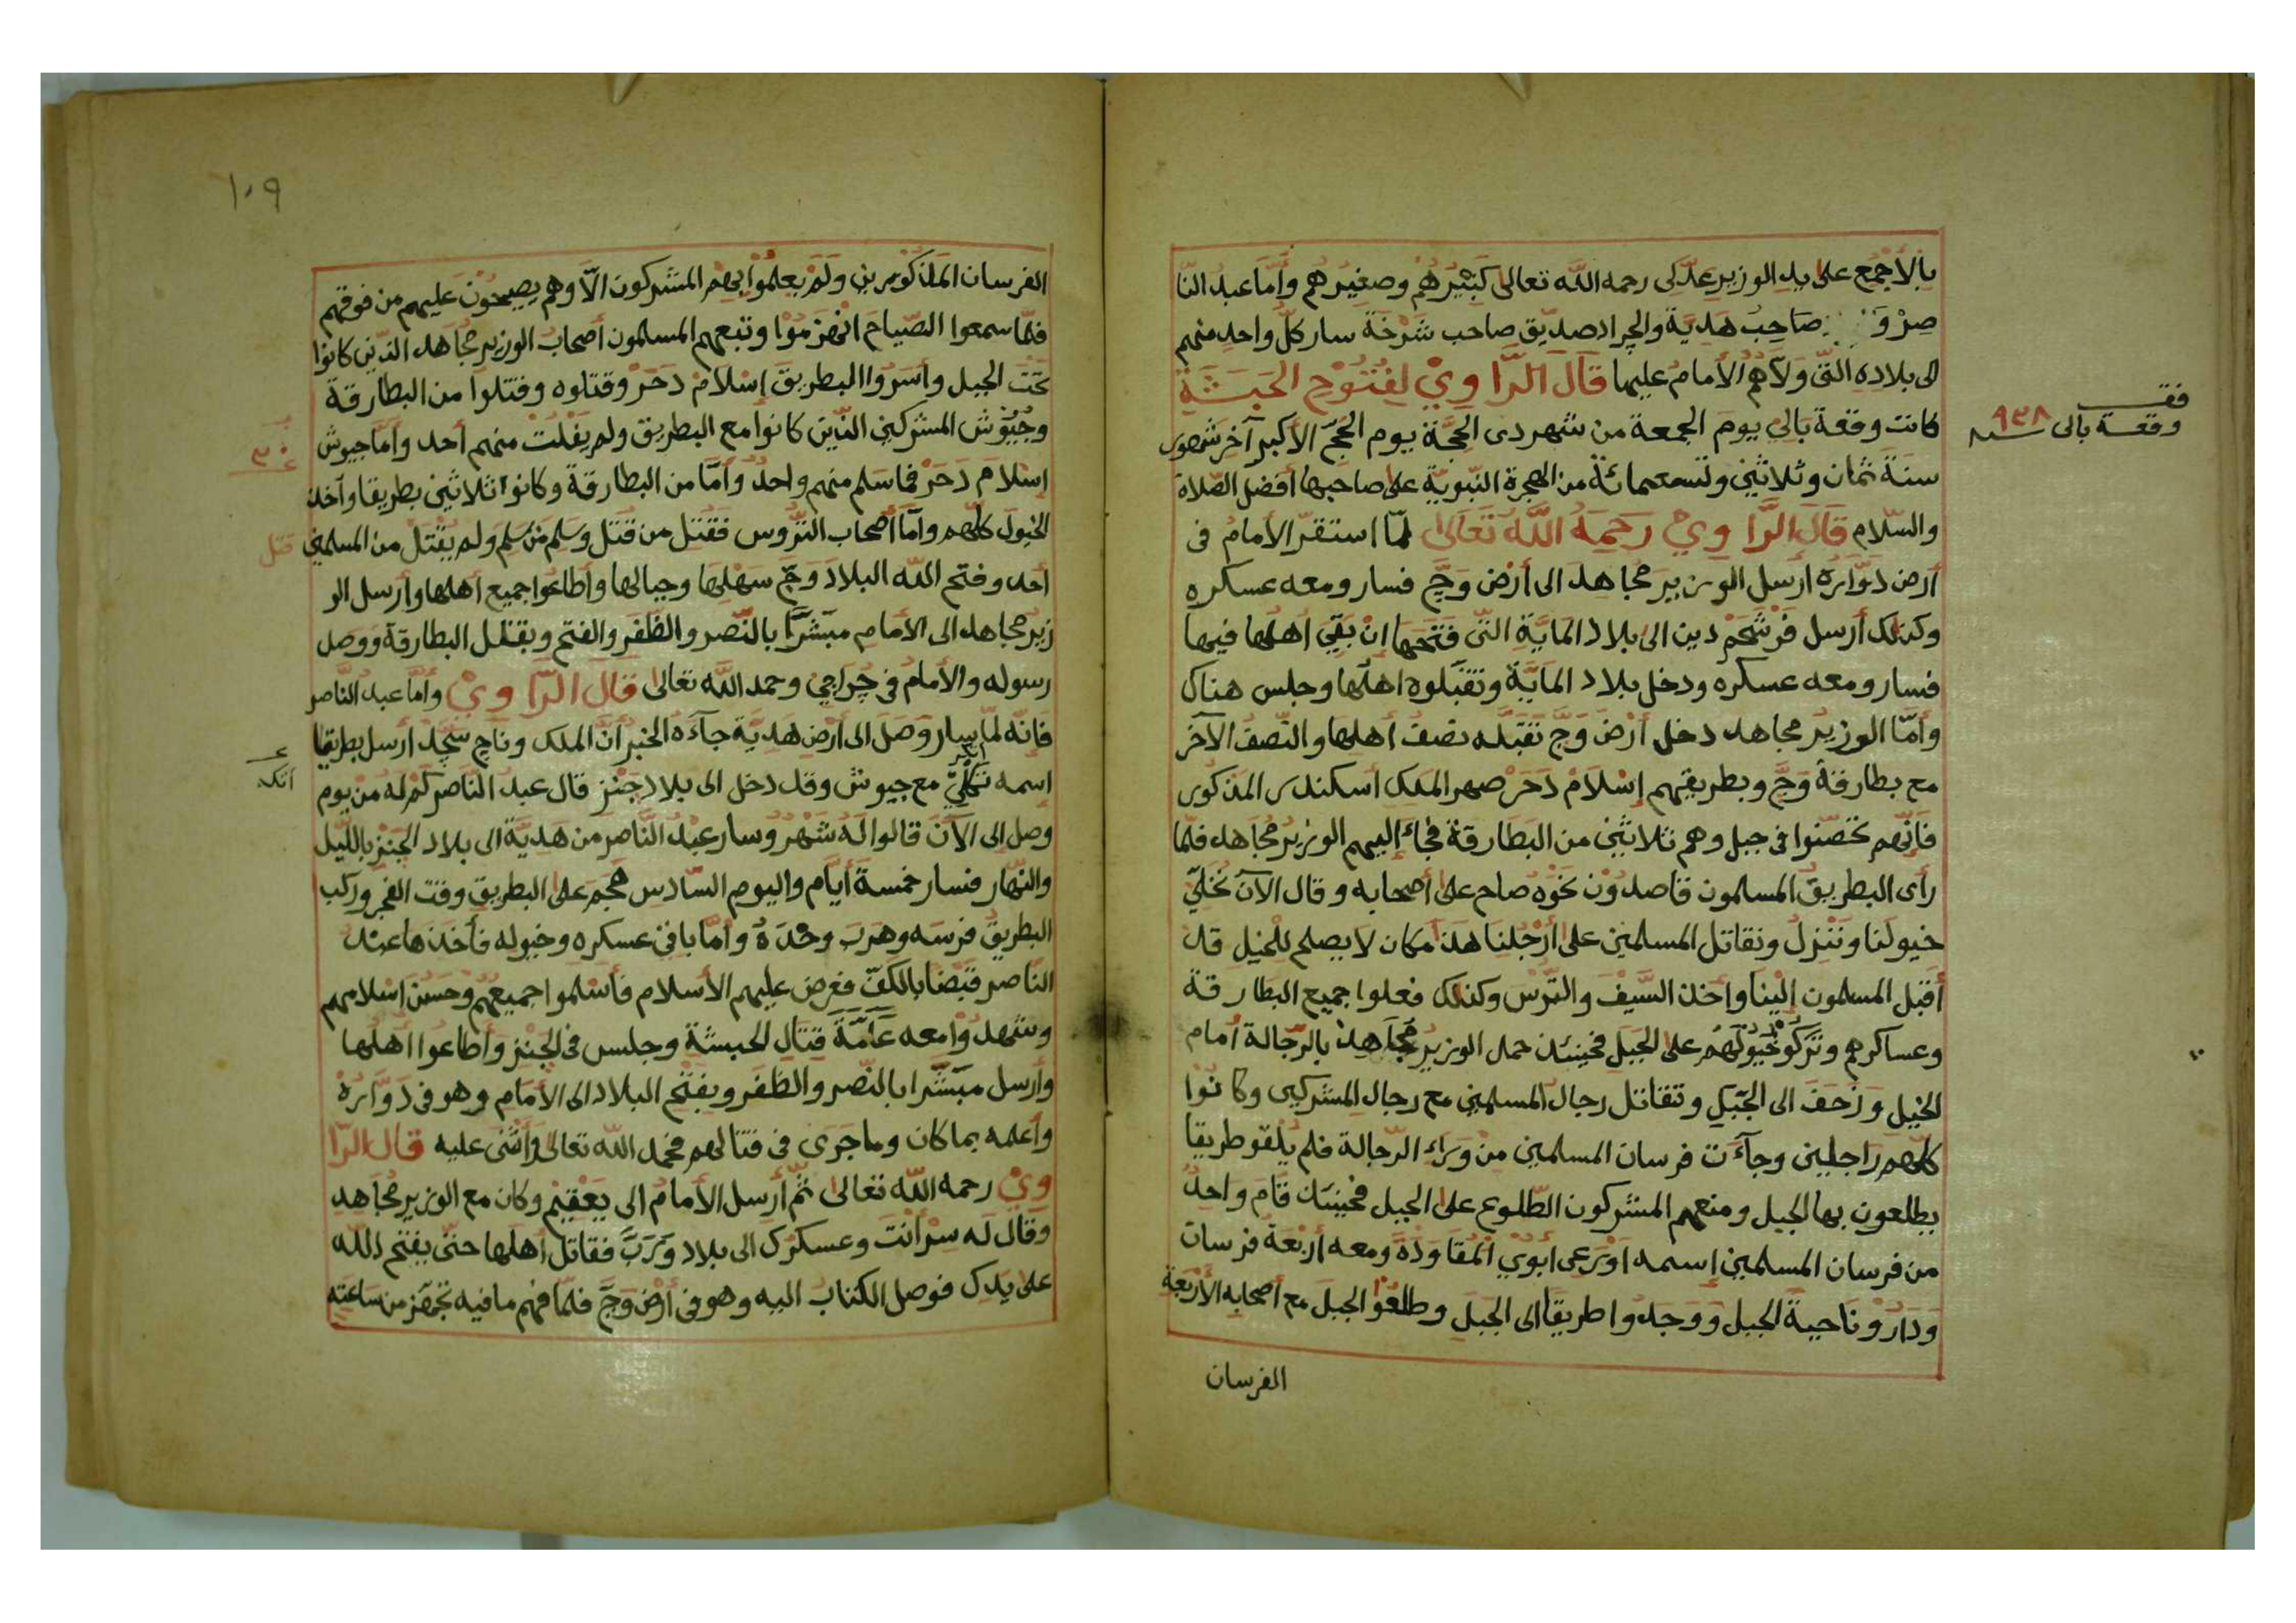 بالأجمع على يد الوزير عدلى رحمه الله تعالى كبيرهم وصغيرهم وأما عبد النا
صر و صاحب هدية والجراد صديق صاحب شرخة سار كل واحد منهم
الى بلاده التى ولاهم الأمام عليها قال الراوي لفتوح الحبشة
كانت وقعة بالي يوم الجمعة من شهر دى الحجة يوم الحج الأكبر آخر شهور
سنة ثمان وثلاثين وتسعمائة من الهجرة النبوية على صاحبها أفضل الصلاة
والسلام قال الراوي رحمه الله تعالى لما استقر الأمام فى
أرض دواره أرسل الوزير مجاهد الى أرض وج فسار ومعه عسكره
وكذلك أرسل فرشحم دين الى بلاد الماية التى فتحها ان بقي اهلها فيها
فسار ومعه عسكره ودخل بلاد الماية وتقبلوه اهلها وجلس هناك
وأما الوزير مجاهد دخل أرض وج تقبله نصف أهلها والنصف الآخر
مع بطارقة وج وبطريقهم إسلام دحر صهر الملك اسكندر المذكور
فانهم تحصنوا فى جبل وهم ثلاثين من البطارقة فجاء إليهم الوزير مجاهد فلما
رأى البطريق المسلمون قاصدون نحوه صاح على أصحابه وقال الآن نخلي
خيولنا وننزل ونقاتل المسلمين على أرجلنا هذا مكان لا يصلح للخيل قد
أقبل المسلمون إلينا وأخذ السيف والترس وكذلك فعلوا جميع البطارقة
وعساكرهم وتركو خيولهم على الجبل فحينئذ حمل الوزير مجاهد بالرجالة أمام
الخيل وزحف الى الجبل وتقاتل رجال المسلمين مع رجال المشركين وكانوا
كلهم راجلين وجآءت فرسان المسلمين من وراء الرجالة فلم يلقو طريقا
يطلعون بها الجبل ومنعهم المشركون الطلوع على الجبل فحينئذ قام واحد
من فرسان المسلمين إسمه اورعى ابوي المقاوده ومعه أربعة فرسان
ودارو ناحية الجبل ووجدوا طريقا الى الجبل وطلعوا الجبل مع أصحابه الأربعة
الفرسان
فقـ
وقعة بالى سنة ٩٣٨
١٠٩
الفرسان المذكورين ولم يعلموا بهم المشركون الا وهم يصيحون عليهم من فوقهم
فلما سمعوا الصياح انهزموا وتبعهم المسلمون أصحاب الوزير مجاهد الذين كانوا
تحت الجبل وأسروا البطريق إسلام دحر وقتلوه وقتلوا من البطارقة
وجيوش المشركين الذين كانوا مع البطريق ولم يفلت منهم أحد وأما جيوش
إسلام دحر فما سلم منهم واحد وأما من البطارقة وكانوا ثلاثين بطريقا وآخذ
الخيول كلهم وأما أصحاب التروس فقتل من قتل وسلم من سلم ولم يقتل من المسلمين
قتل
أحد وفتح الله البلاد وج سهلها وجبالها وأطاعوا جميع أهلها وأرسل الو
زير مجاهد الى الأمام مبشرا بالنصر والظفر والفتح وبقتل البطارقة ووصل
رسوله والأمام فى چراجي وحمد الله تعالى قال الراوي وأما عبد الناصر
فانه لما سار وصل الى أرض هدية جآءه الخبر أن الملك وناج سجد أرسل بطريقا
اسمه تكلي مع جيوش وقد دخل الى بلاد جنز قال عبد الناصر كم له من يوم
وصل الى الآن قالوا له شهر وسار عبد الناصر من هدية الى بلاد الجنز بالليل
والنهار فسار خمسة أيام واليوم السادس هجم على البطريق وقت الفجر وركب
البطريق فرسه وهرب وحده وأما باقى عسكره وخيوله فأخذها عبد
الناصر قبضا بالكف فعرض عليهم الأسلام فأسلموا جميعهم وحسن إسلامهم
وشهدوا معه عامة قتال الحبشة وجلس فى الجنز وأطاعوا اهلها
وأرسل مبشرا بالنصر والظفر وبفتح البلاد الى الأمام وهو فى دواره
وأعلمه بما كان وما جرى فى قتالهم فحمد الله تعالى وأثنى عليه قال الرا
وي رحمه الله تعالى ثم أرسل الأمام الى يعقيم وكان مع الوزير مجاهد
وقال له سر أنت وعسكرك الى بلاد ورب فقاتل اهلها حتى يفتح الله
على يدك فوصل الكتاب اليه وهو فى أرض وج فلما فهم ما فيه تجهز من ساعته